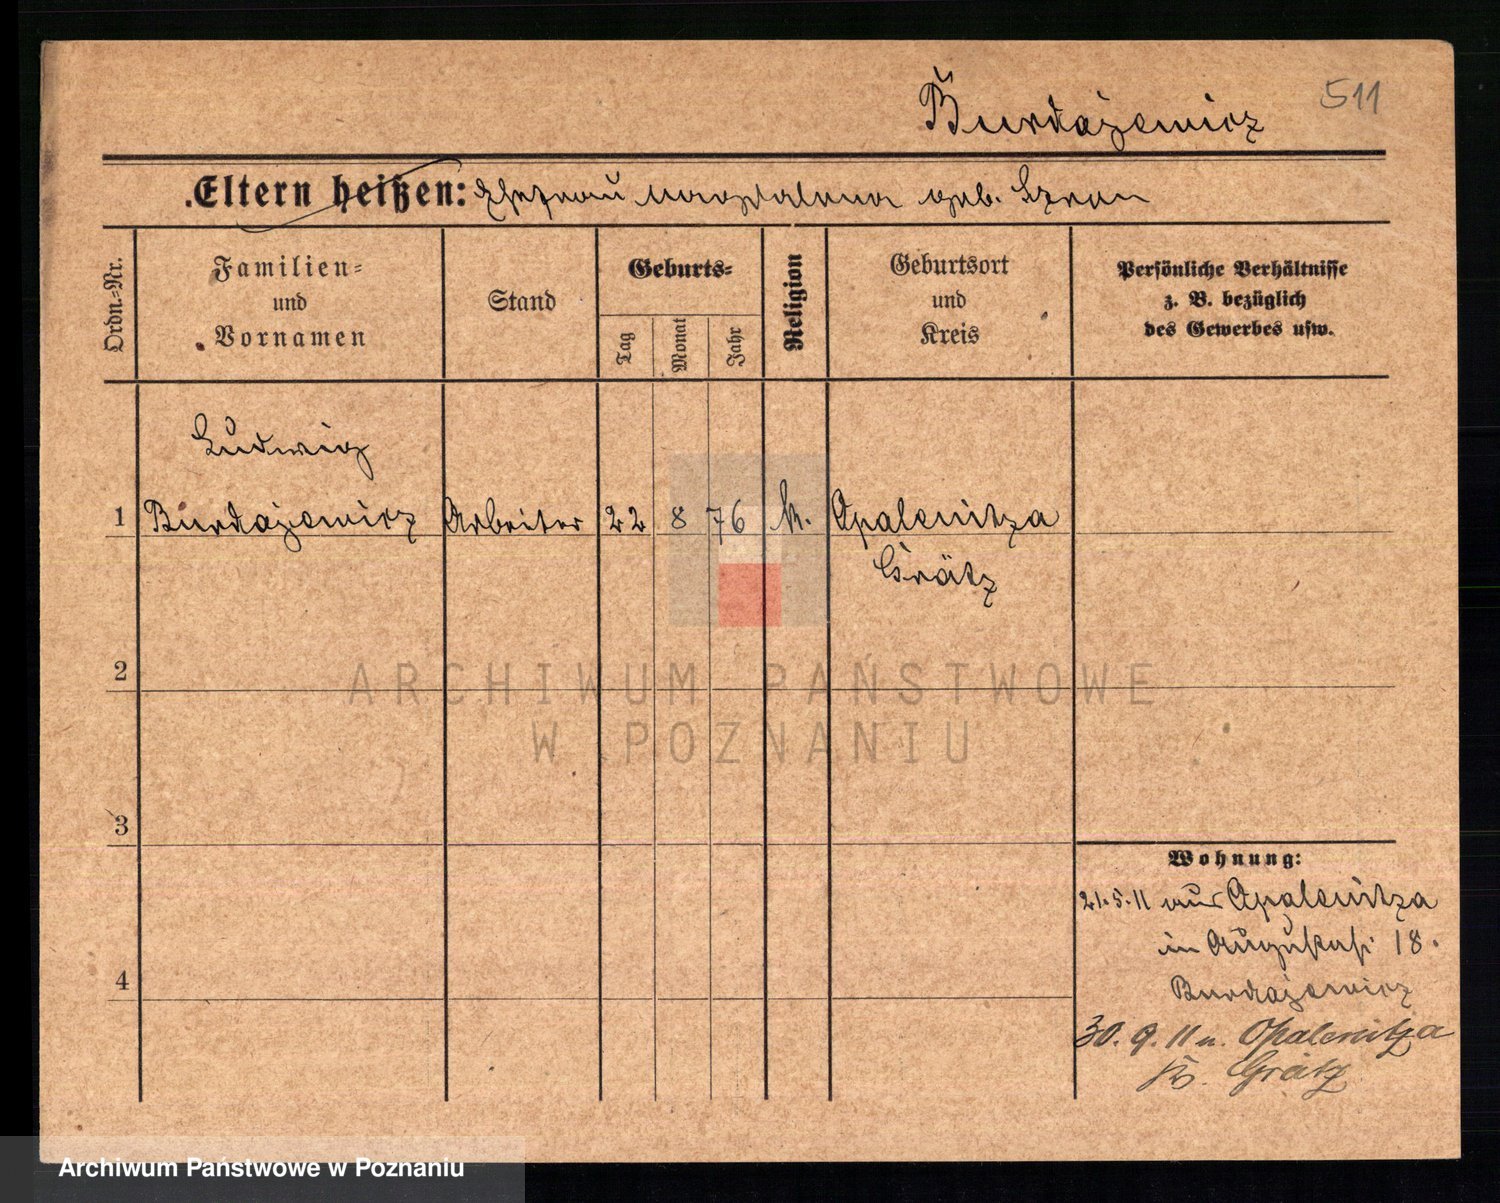 Burdajewicz
511
Eltern heißen: Ehefrau Magdalena geb.
Ordn.-Nr.
Familien-
und
Vornamen
Stand
Geburts-
Tag
Monat
Jahr
Religion
Geburtsort
und
Kreis
Persönliche Verhältnisse
z. B. bezüglich
des Gewerbes usw.
Ludwig
1 Burdajewicz Arbeiter 22 8 76 k. Opalenitza
Grätz
2
ARCHIWUM PAŃSTWOWE
W POZNANIU
3
Wohnung:
21.5.11 aus Opalenitza
in Augustastr 18.
4
Burdajewicz
30. 9. 11 n. Opalenitza
Kr. Grätz
Archiwum Państwowe w Poznaniu